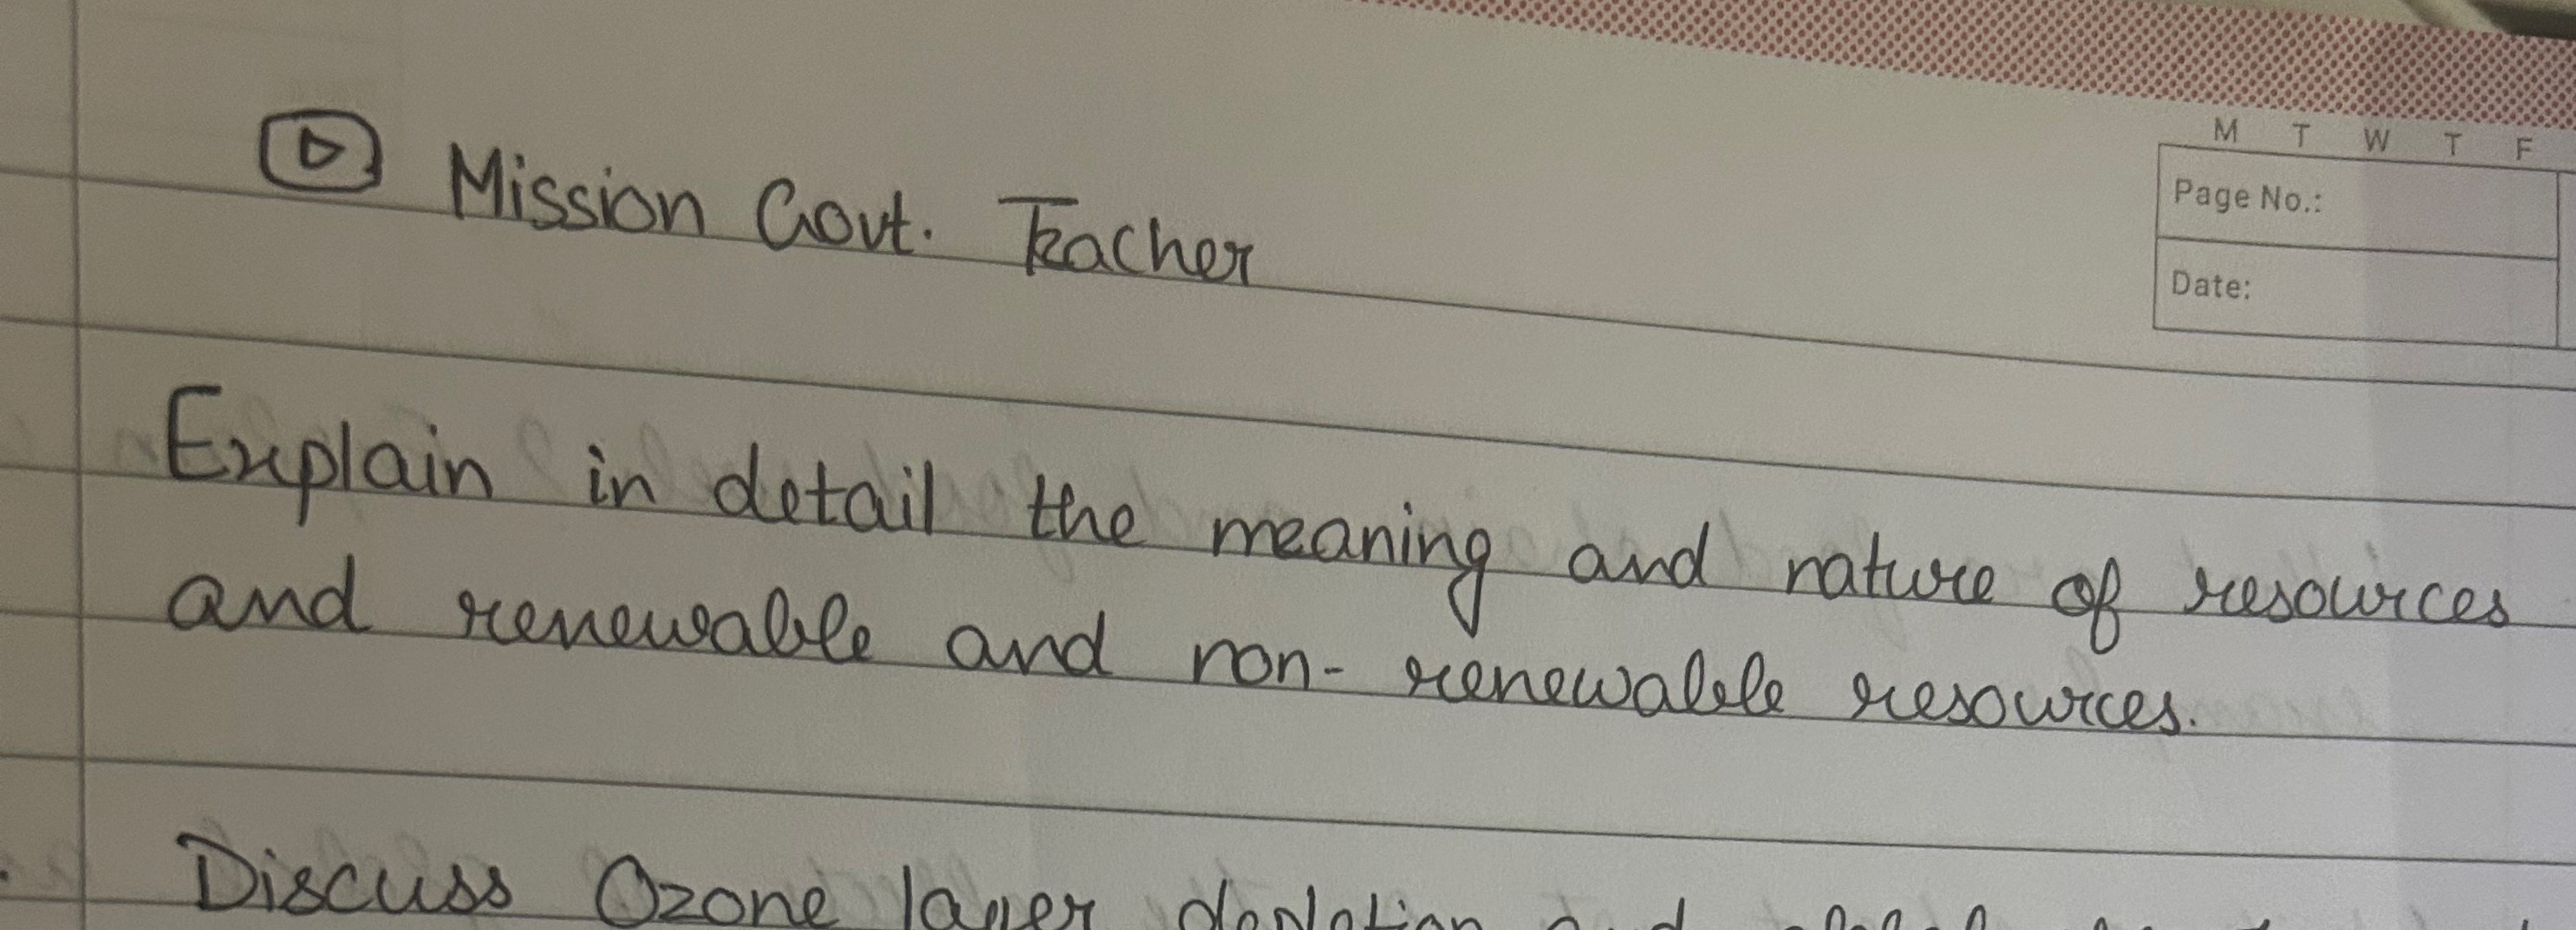 Mission Govt. Teacher
M T W T F
Page No.:
Date:
Explain in detail the meaning and nature of resources
and renewable and non-renewable resources.
Discuss Ozone layer depletion and